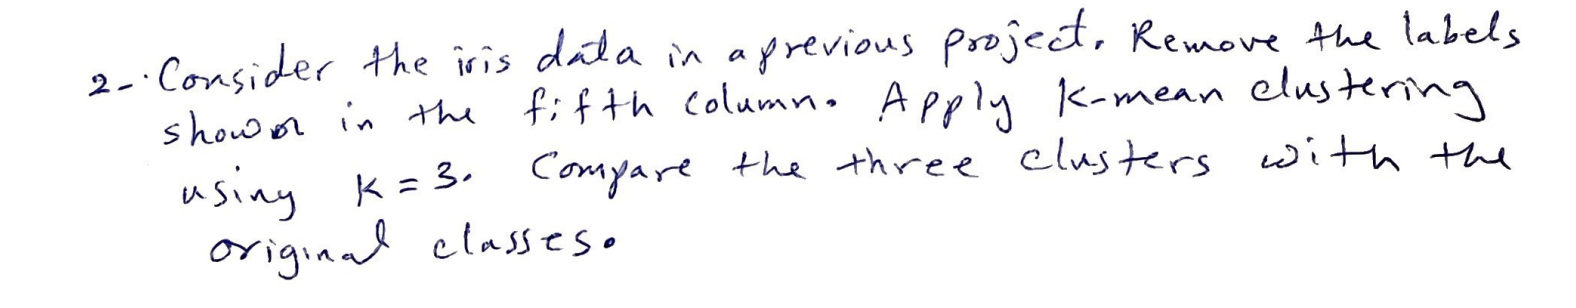 2-. Consider the iris data in a previous project. Remove the labels
shown in the fifth column. Apply K-mean clustering
using K=3. Compare the three clusters with the
original classes.